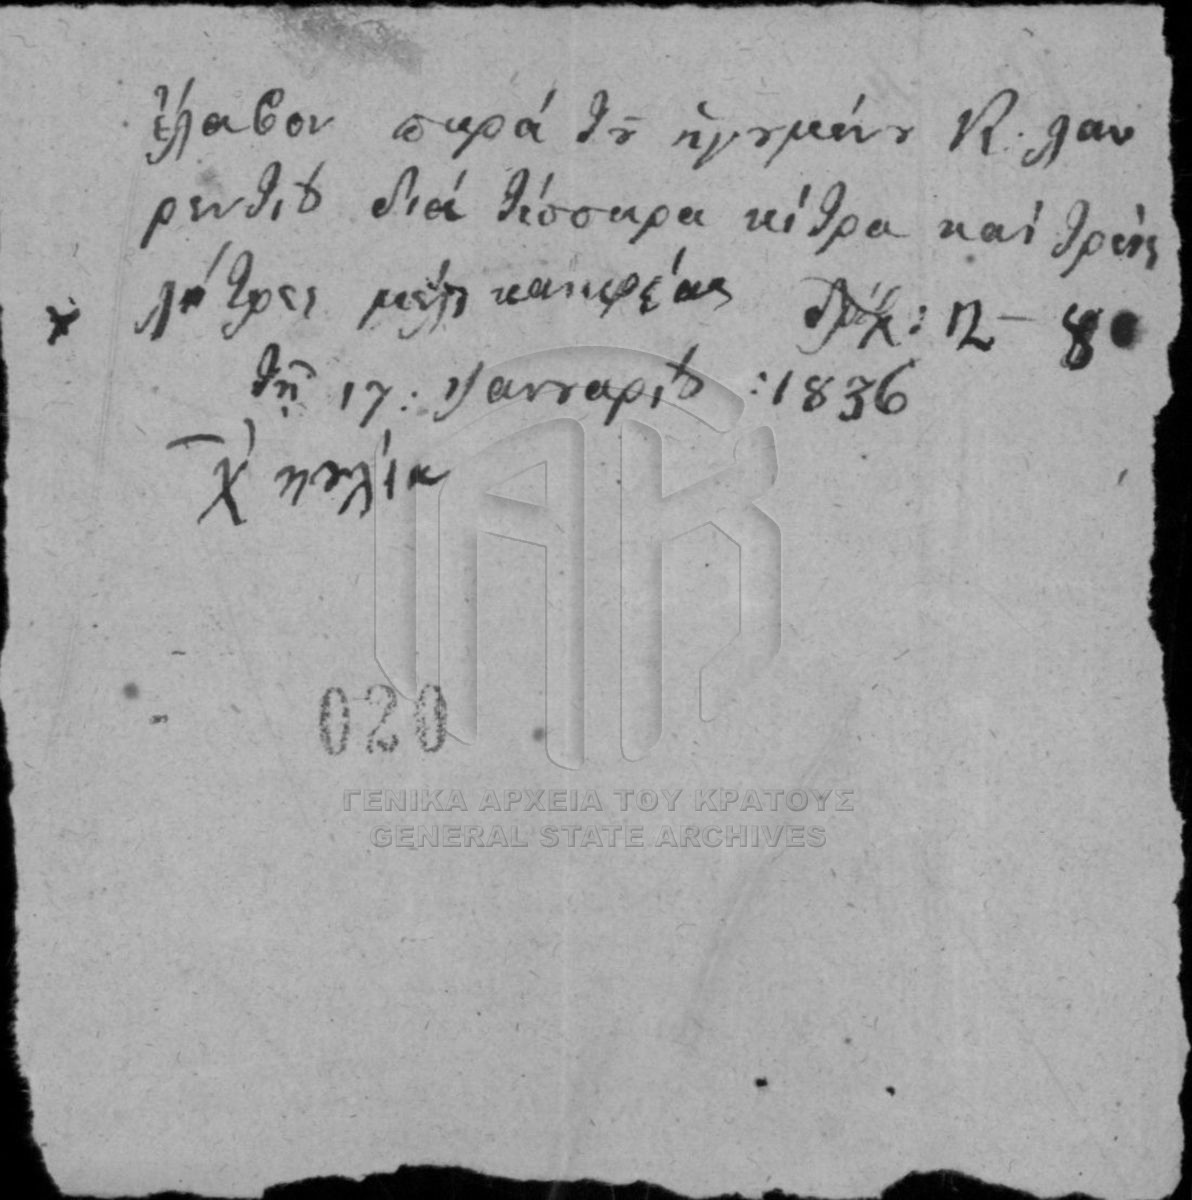 ἔλαβον παρά τοῦ ἡγουμένου Κ. λαυ
ρεντίου διά τέσσαρα κίτρα καί τρεῖς
λύτρες μέλι δρχ: 12 - 80
τῇ 17: Ιανουαρίου :1836
020
ΓΕΝΙΚΑ ΑΡΧΕΙΑ ΤΟΥ ΚΡΑΤΟΥΣ
GENERAL STATE ARCHIVES